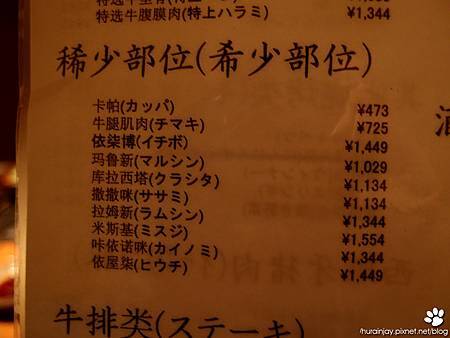 特选牛腹膜肉(特上ハラミ) ¥1,344
稀少部位(希少部位)
卡帕(カッパ) ¥473
牛腿肌肉(チマキ) ¥725
依柒博(イチボ) ¥1,449
玛鲁新(マルシン) ¥1,029
库拉西塔(クラシタ) ¥1,134
撒撒咪(ササミ) ¥1,134
拉姆新(ラムシン) ¥1,344
米斯基(ミスジ) ¥1,554
咔依诺咪(カイノミ) ¥1,344
依屋柒(ヒウチ) ¥1,449
牛排类(ステーキ)
/hurainjay.pixnet.net/blog